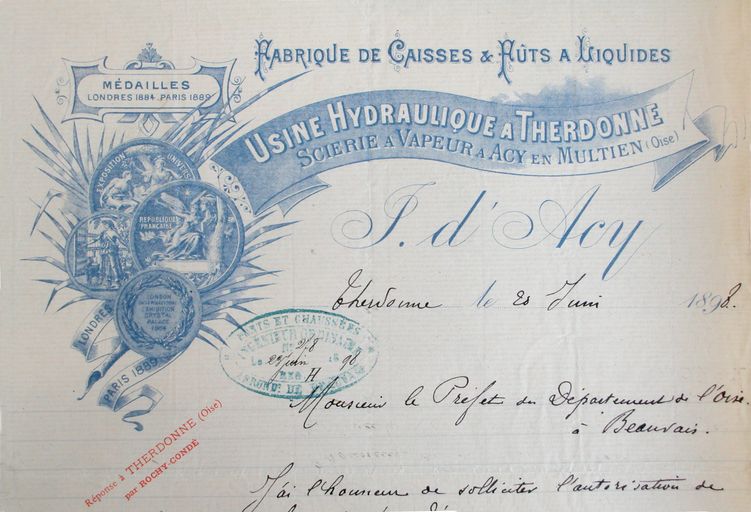 FABRIQUE DE CAISSES & FÛTS A LIQUIDES
MÉDAILLES
LONDRES 1884. PARIS 1889
USINE HYDRAULIQUE A THERDONNE
SCIERIE A VAPEUR A ACY EN MULTIEN (Oise)
EXPOSITION UNIVERS
REPUBLIQUE
FRANÇAISE
J. d'Acy
LONDON
INTERNATIONAL
EXHIBITION
CRYSTAL
PALACE
1884
LONDRES
PARIS 1889
Therdonne le 20 Juin 1898.
PONTS ET CHAUSSÉES
INGÉNIEUR ORDINAIRE
278
Le 22 juin 1898
H
ARRONDt DE BEAUVAIS
Monsieur le Préfet du Département de l'Oise.
à Beauvais.
Réponse à THERDONNE (Oise)
par ROCHY-CONDÉ
J'ai l'honneur de solliciter l'autorisation de